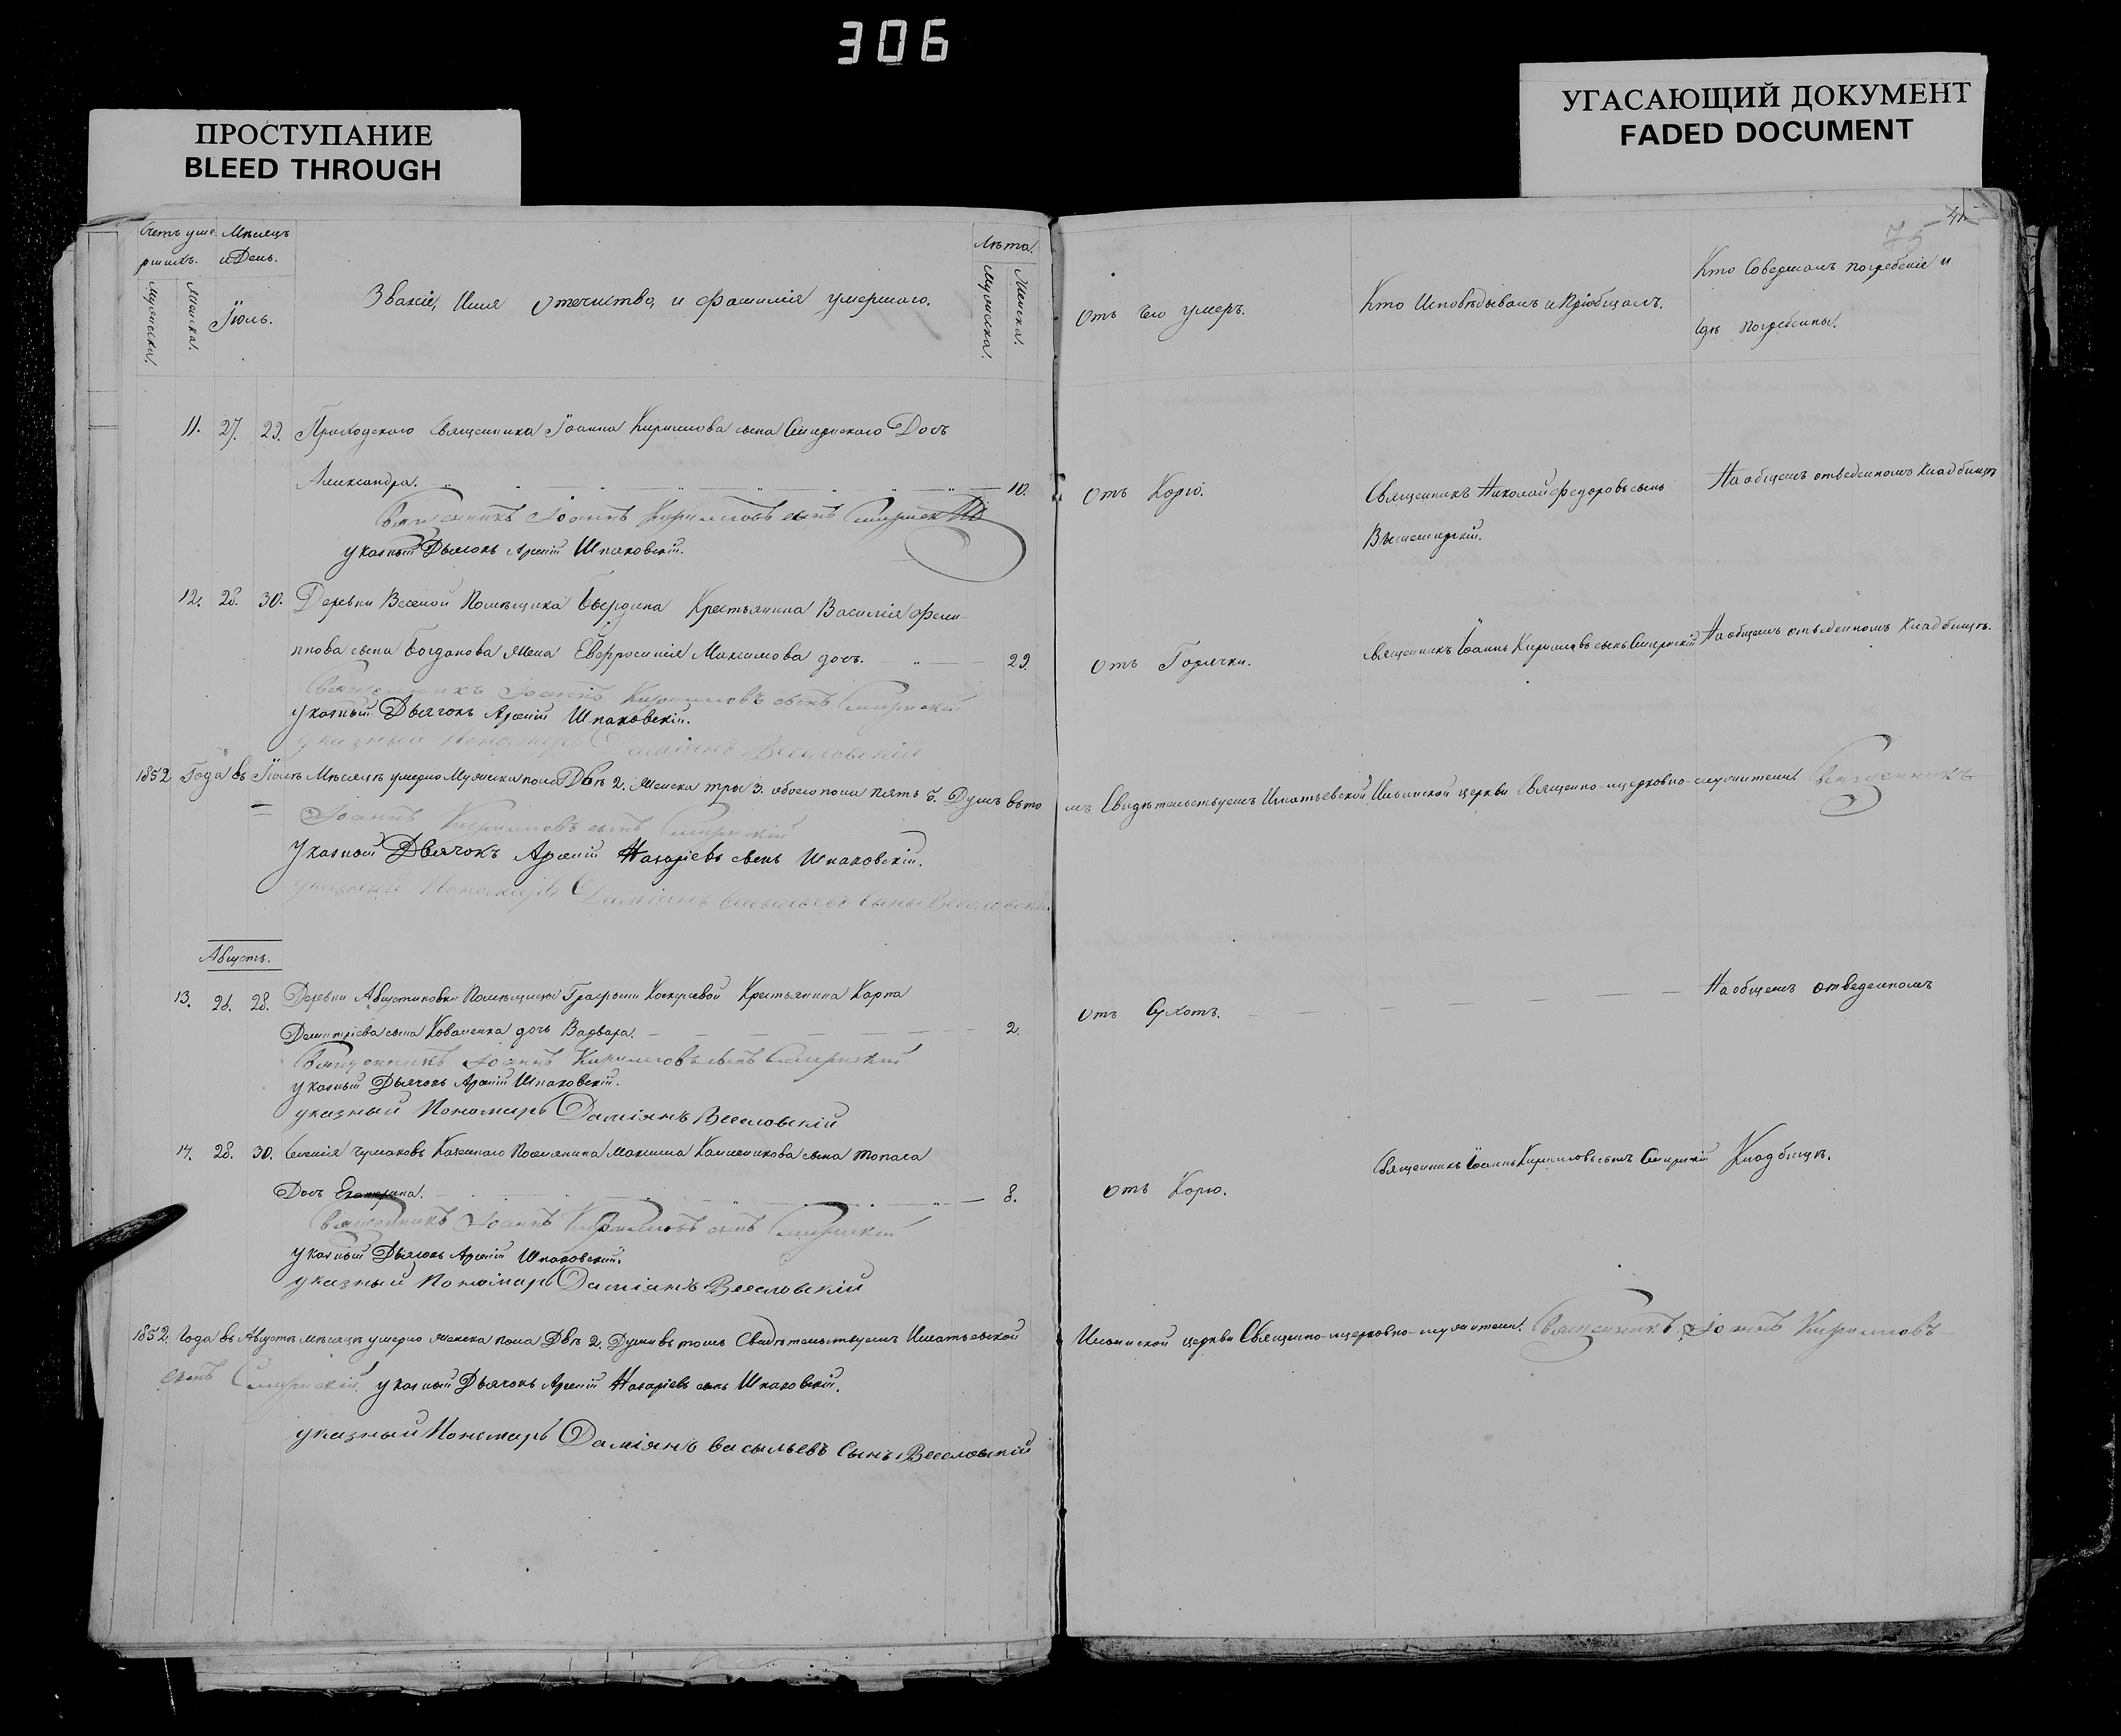 306
ПРОСТУПАНИЕ
BLEED THROUGH
УГАСАЮЩИЙ ДОКУМЕНТ
FADED DOCUMENT
75
Счетъ уме Мѣсяцъ
ршихъ. и День.
Мужеска. Женска. Іюль.
Званіе, Имя Отечество, и фамилія умершаго.
Лѣта.
Мужеска. Женска.
Отъ чего умеръ.
Кто Исповѣдывалъ и Пріобщалъ.
Кто Совершалъ погребеніе и
гдѣ погребены.
11. 27. 29. Приходскаго Священника Іоанна Кириллова сына Смирнскаго Дочь
Александра. 10. Отъ Корю. Священникъ Николай Федоровъ сынъ На общемъ отведенномъ кладбищѣ
Священникъ Іоаннъ Кирилловъ сынъ
указный Дьячокъ Арсеній Шпаковскій.
12. 28. 30. Деревни Веселой Помѣщика Крестьянина Василія Фили-
ппова сына Богданова жена Евфросинія Максимова дочь. 29. Отъ Горячки. Священникъ Іоаннъ Кирилловъ сынъ Смирнскій На общемъ отведенномъ кладбищѣ.
Священникъ Іоаннъ Кирилловъ сынъ Смирнскій
указный Дьячокъ Арсеній Шпаковскій.
указный Пономарь Даміянъ Веселовскій
1852 Года въ Іюлѣ Мѣсяцѣ умерло Мужеска пола Двѣ 2. Женска три 3. обоего пола пять 5. Душъ въ то мъ Свидѣтельствуемъ Игнатьевской Ильинской церкви Священно-церковно-служители. Священникъ
Іоаннъ Кирилловъ сынъ Смирнскій
Указный Дьячокъ Арсеній Назаріевъ сынъ Шпаковскій.
указный Пономарь Даміянъ Васильевъ Сынъ Веселовскій
Августъ.
13. 26. 28. Деревни Августиновки Помѣщицы Крестьянина Карпа На общемъ отведенномъ
Димитріева сына Коваленка дочь Варвара. 2. Отъ Сухотъ.
Священникъ Іоаннъ Кирилловъ сынъ Смирнскій
указный Дьячокъ Арсеній Шпаковскій.
указный Пономарь Даміянъ Веселовскій
14. 28. 30. Селенія Чумаковъ Казеннаго Поселянина Максима сына Топала Священникъ Іоаннъ Кирилловъ сынъ Смирнскій Кладбищѣ.
Дочь Екатерина. 8. Отъ Корю.
Священникъ Іоаннъ Кирилловъ сынъ Смирнскій
указный Дьячокъ Арсеній Шпаковскій.
указный Пономарь Даміянъ Веселовскій
1852 Года въ Августѣ мѣсяцѣ умерло женска пола Двѣ 2. Души въ томъ Свидѣтельствуемъ Игнатьевской Ильинской церкви Священно-церковно-служители. Священникъ Іоаннъ Кирилловъ
сынъ Смирнскій. указный Дьячокъ Арсеній Назаріевъ сынъ Шпаковскій.
указный Пономарь Даміянъ Васильевъ Сынъ Веселовскій